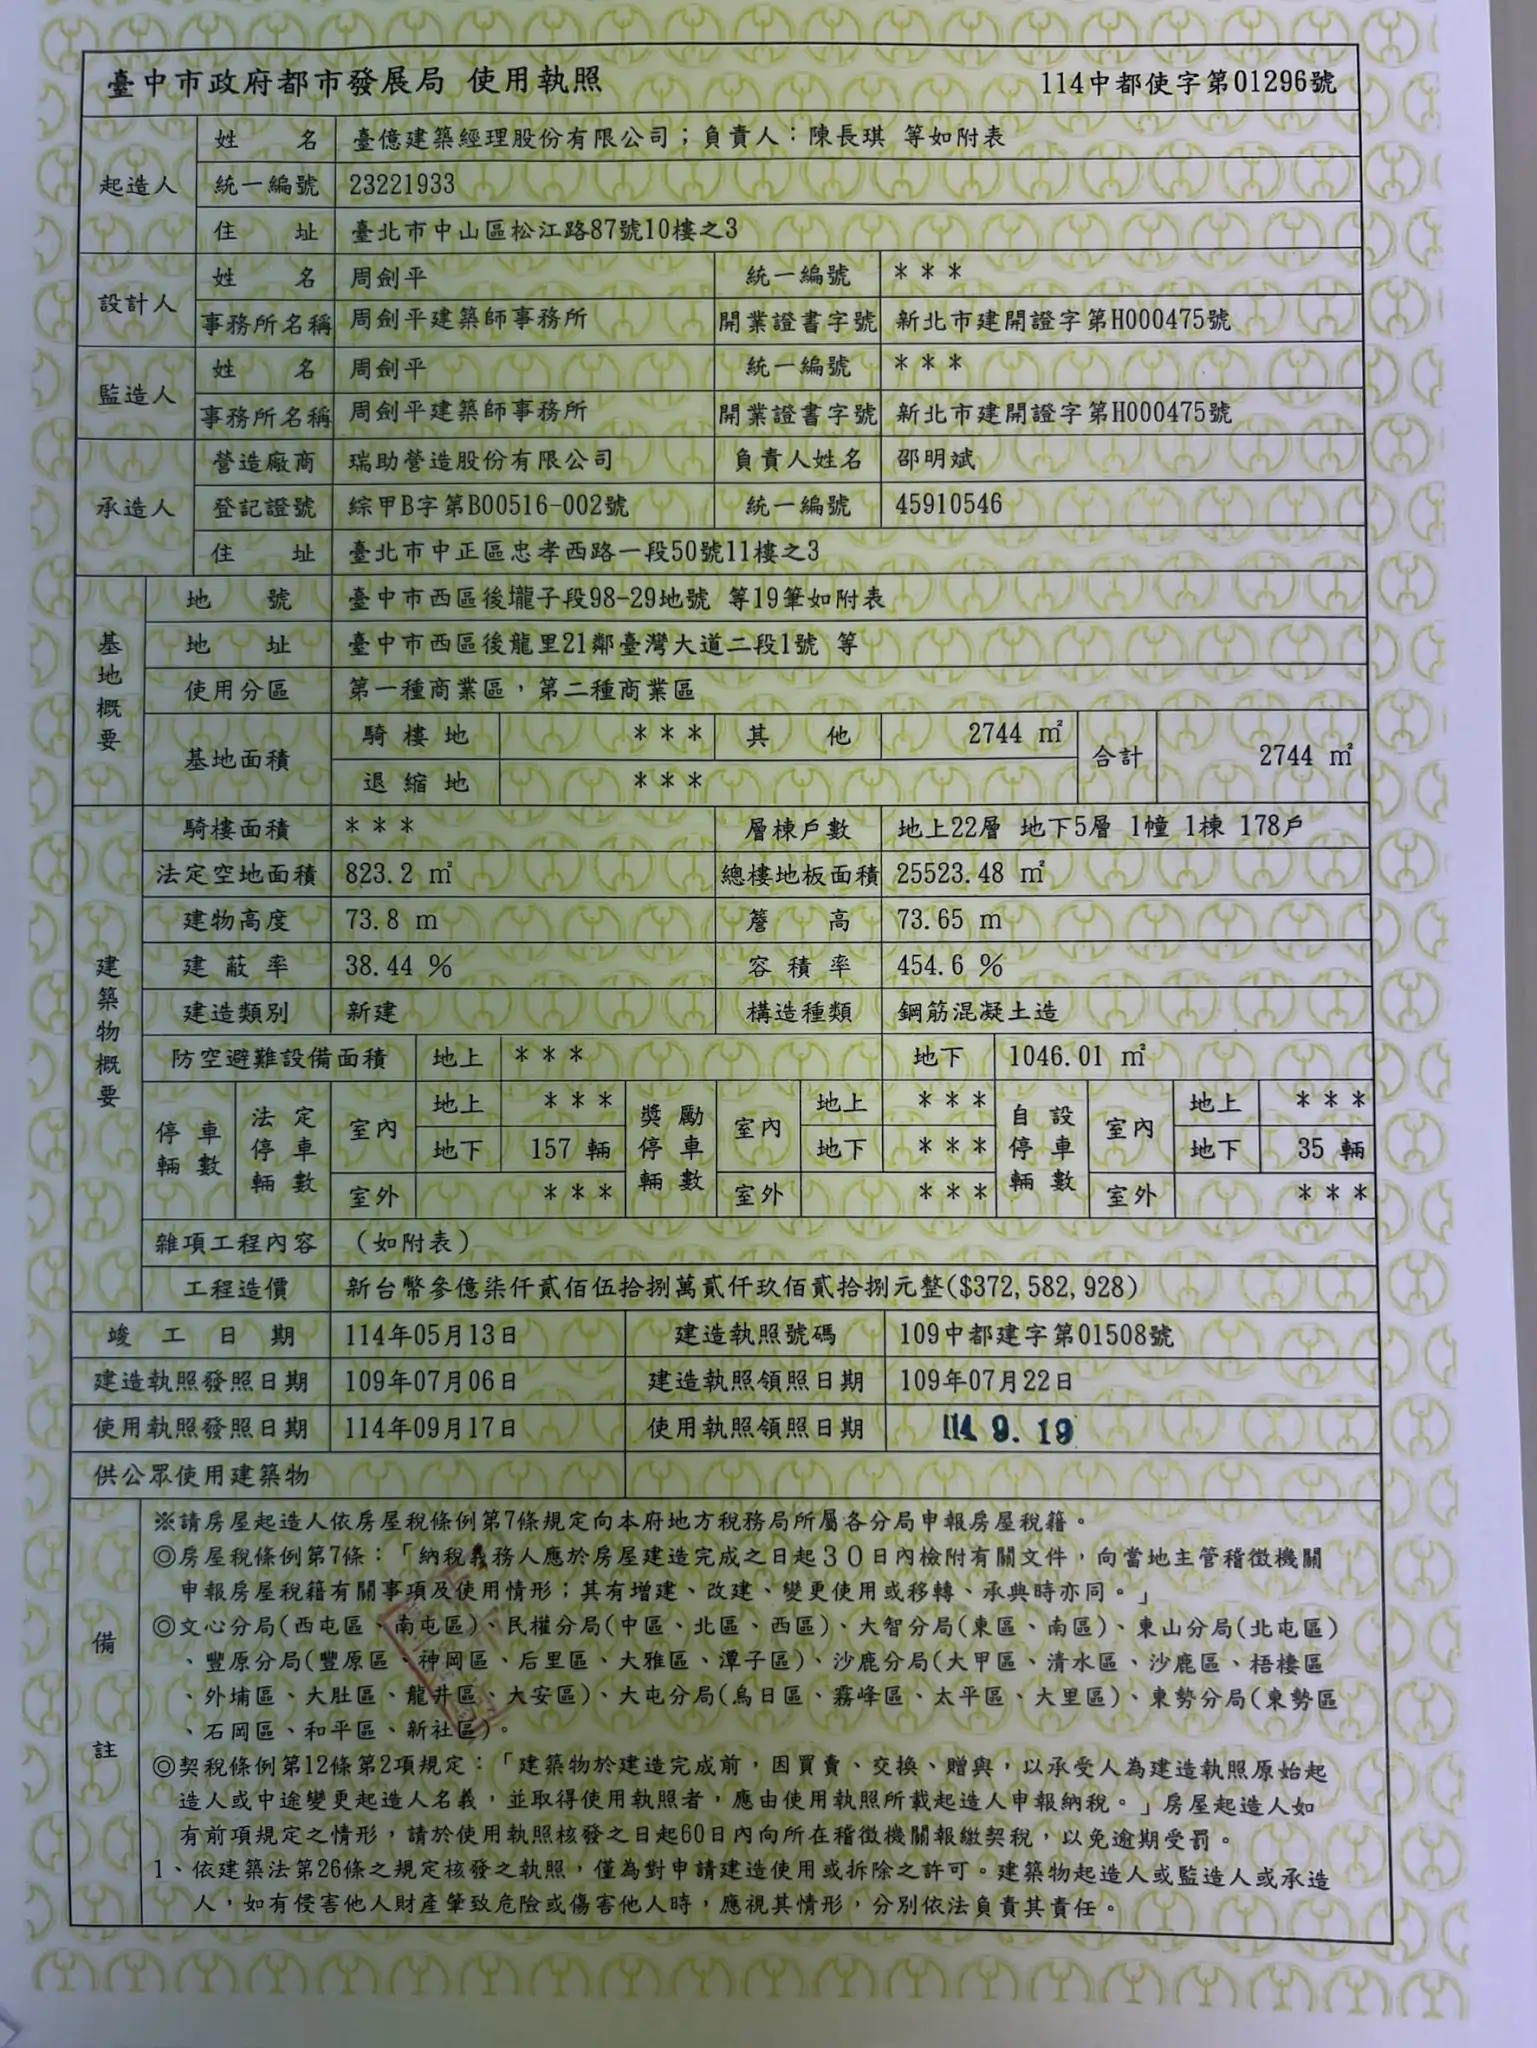 臺中市政府都市發展局 使用執照 114中都使字第01296號
起造人 姓名 臺億建築經理股份有限公司；負責人：陳長琪 等如附表
統一編號 23221933
住址 臺北市中山區松江路87號10樓之3
設計人 姓名 周劍平 統一編號 ***
事務所名稱 周劍平建築師事務所 開業證書字號 新北市建開證字第H000475號
監造人 姓名 周劍平 統一編號 ***
事務所名稱 周劍平建築師事務所 開業證書字號 新北市建開證字第H000475號
承造人 營造廠商 瑞助營造股份有限公司 負責人姓名 邵明斌
登記證號 綜甲B字第B00516-002號 統一編號 45910546
住址 臺北市中正區忠孝西路一段50號11樓之3
基地概要 地號 臺中市西區後壠子段98-29地號 等19筆如附表
地址 臺中市西區後龍里21鄰臺灣大道二段1號 等
使用分區 第一種商業區，第二種商業區
基地面積 騎樓地 *** 其他 2744 ㎡ 合計 2744 ㎡
退縮地 ***
建築物概要 騎樓面積 *** 層棟戶數 地上22層 地下5層 1幢 1棟 178戶
法定空地面積 823.2 ㎡ 總樓地板面積 25523.48 ㎡
建物高度 73.8 m 簷高 73.65 m
建蔽率 38.44 % 容積率 454.6 %
建造類別 新建 構造種類 鋼筋混凝土造
防空避難設備面積 地上 *** 地下 1046.01 ㎡
停車輛數 法定停車輛數 室內 地上 *** 獎勵停車輛數 室內 地上 *** 自設停車輛數 室內 地上 ***
地下 157 輛 地下 *** 地下 35 輛
室外 *** 室外 *** 室外 ***
雜項工程內容 （如附表）
工程造價 新台幣參億柒仟貳佰伍拾捌萬貳仟玖佰貳拾捌元整($372,582,928)
竣工日期 114年05月13日 建造執照號碼 109中都建字第01508號
建造執照發照日期 109年07月06日 建造執照領照日期 109年07月22日
使用執照發照日期 114年09月17日 使用執照領照日期 114. 9. 19
供公眾使用建築物
備註 ※請房屋起造人依房屋稅條例第7條規定向本府地方稅務局所屬各分局申報房屋稅籍。
◎房屋稅條例第7條：「納稅義務人應於房屋建造完成之日起３０日內檢附有關文件，向當地主管稽徵機關
申報房屋稅籍有關事項及使用情形；其有增建、改建、變更使用或移轉、承典時亦同。」
◎文心分局(西屯區、南屯區)、民權分局(中區、北區、西區)、大智分局(東區、南區)、東山分局(北屯區)
、豐原分局(豐原區、神岡區、后里區、大雅區、潭子區)、沙鹿分局(大甲區、清水區、沙鹿區、梧棲區
、外埔區、大肚區、龍井區、大安區)、大屯分局(烏日區、霧峰區、太平區、大里區)、東勢分局(東勢區
、石岡區、和平區、新社區)。
◎契稅條例第12條第2項規定：「建築物於建造完成前，因買賣、交換、贈與，以承受人為建造執照原始起
造人或中途變更起造人名義，並取得使用執照者，應由使用執照所載起造人申報納稅。」房屋起造人如
有前項規定之情形，請於使用執照核發之日起60日內向所在稽徵機關報繳契稅，以免逾期受罰。
1、依建築法第26條之規定核發之執照，僅為對申請建造使用或拆除之許可。建築物起造人或監造人或承造
人，如有侵害他人財產肇致危險或傷害他人時，應視其情形，分別依法負責其責任。